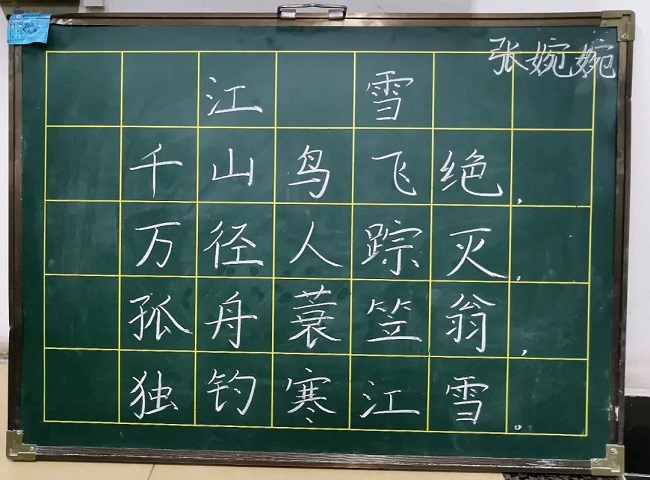 张婉婉
江雪
千山鸟飞绝，
万径人踪灭。
孤舟蓑笠翁，
独钓寒江雪。